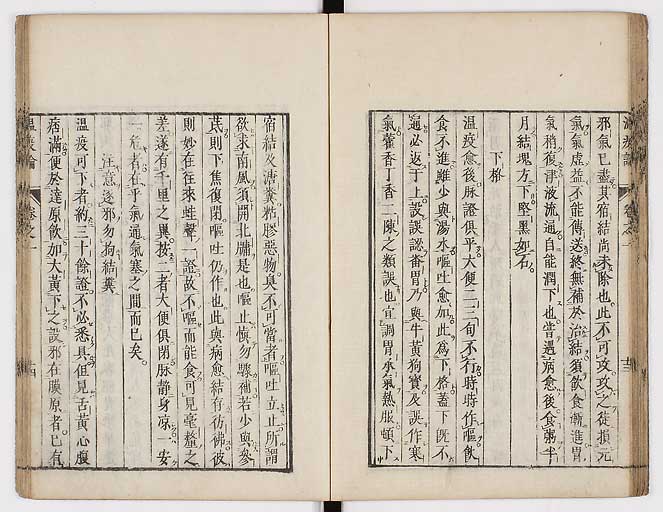 邪氣已盡其宿結尚未除也此不可攻攻之徒損元
氣氣虛益不能傳送終無補於治結須飲食漸進胃
氣稍復津液流通自能潤下也嘗遇病愈後食粥半
月結塊方下堅黑如石
下格
溫疫愈後脉證俱平大便二三旬不行時時作嘔飲
食不進雖少與湯水嘔吐愈加此爲下格蓋下既不
通必返于上設誤認番胃乃與牛黃狗寶及誤作寒
氣藿香丁香二陳之類誤也宜調胃承氣熱服頓下
宿結及溏糞粘膠惡物臭不可當者嘔吐立止所謂
欲求南風須開北牖是也嘔止慎勿驟補若少與參
芪則下焦復閉嘔吐仍作也此與病愈結存彷彿彼
則妙在往來蛙聲一證故不嘔而能食可見毫釐之
差遂有千里之異按二者大便俱閉脉靜身凉一安
一危者在乎氣通氣塞之間而已矣
注意逐邪勿拘結糞
溫疫可下者約三十餘證不必悉具但見舌黃心腹
痞滿便於達原飲加大黃下之設邪在膜原者已有
溫疫論
卷之一